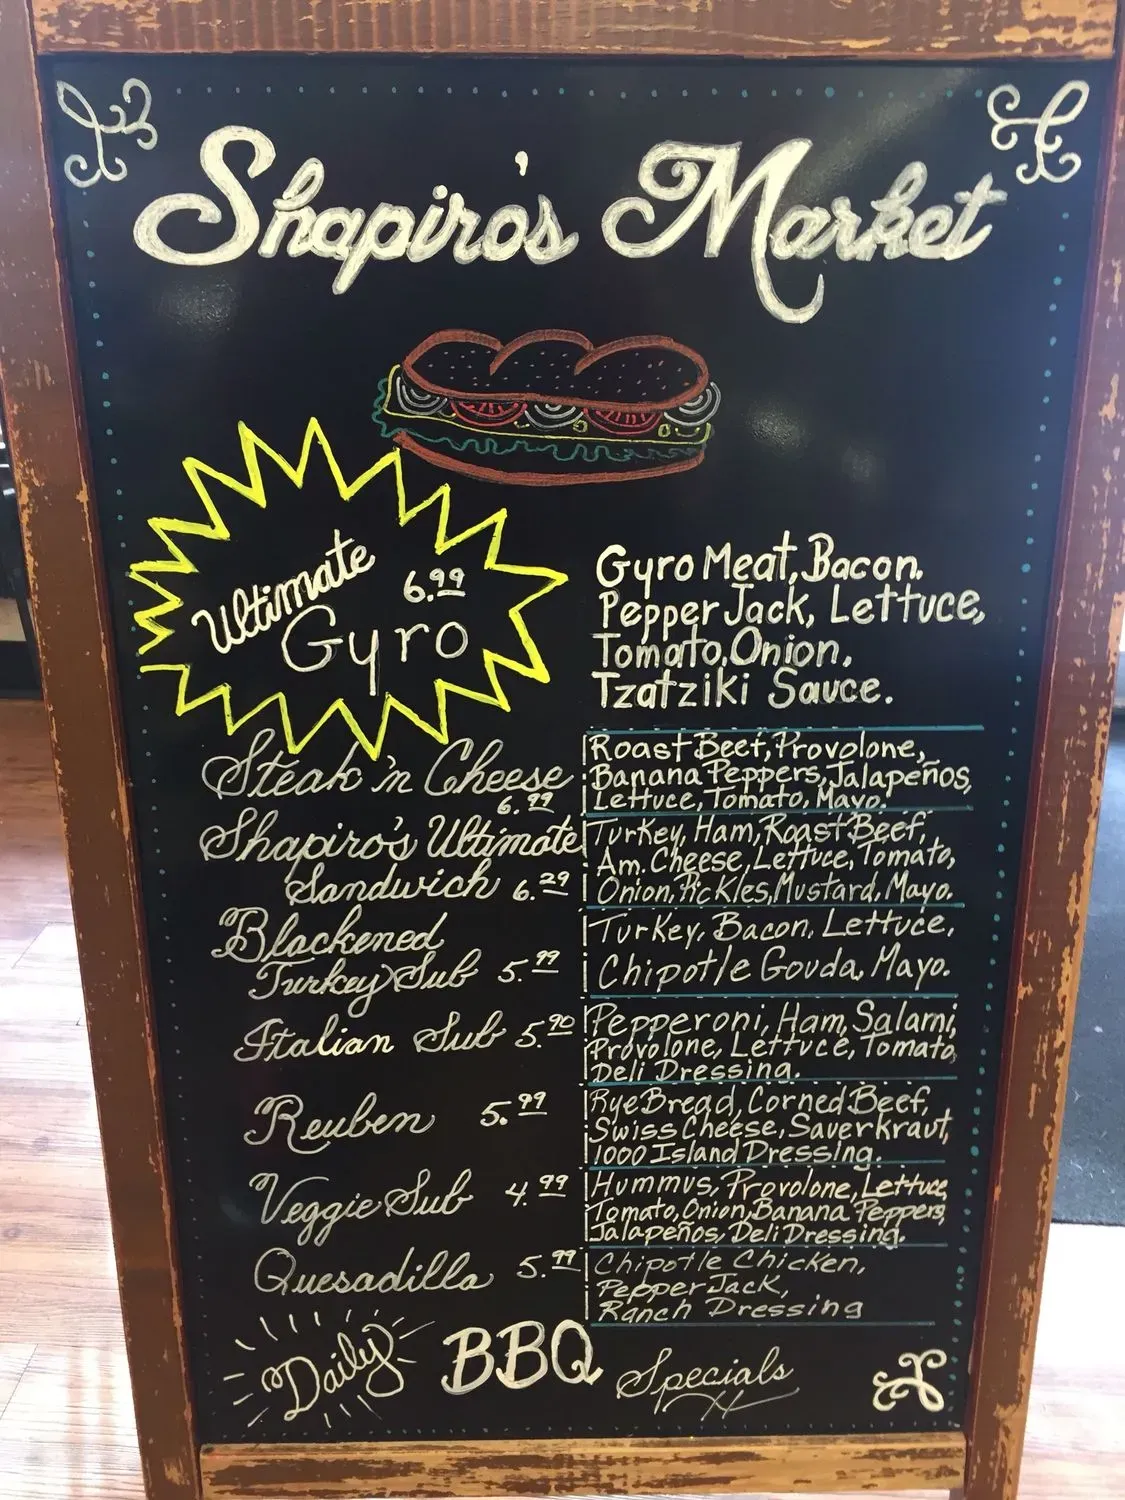 Shapiro's Market
Ultimate 6.99
Gyro
Gyro Meat, Bacon.
Pepper Jack, Lettuce,
Tomato, Onion.
Tzatziki Sauce.
Steak 'n Cheese
6.99
Roast Beef, Provolone,
Banana Peppers, Jalapeños,
Lettuce, Tomato, Mayo.
Shapiro's Ultimate
Sandwich 6.29
Turkey, Ham, Roast Beef,
Am. Cheese, Lettuce, Tomato,
Onion, Pickles, Mustard, Mayo.
Blackened
Turkey Sub 5.99
Turkey, Bacon, Lettuce,
Chipotle Gouda, Mayo.
Italian Sub 5.90
Pepperoni, Ham, Salami,
Provolone, Lettuce, Tomato,
Deli Dressing.
Reuben 5.99
Rye Bread, Corned Beef,
Swiss Cheese, Sauerkraut,
1000 Island Dressing.
Veggie Sub 4.99
Hummus, Provolone, Lettuce,
Tomato, Onion, Banana Peppers,
Jalapeños, Deli Dressing.
Quesadilla 5.99
Chipotle Chicken,
Pepper Jack,
Ranch Dressing
Daily BBQ Specials